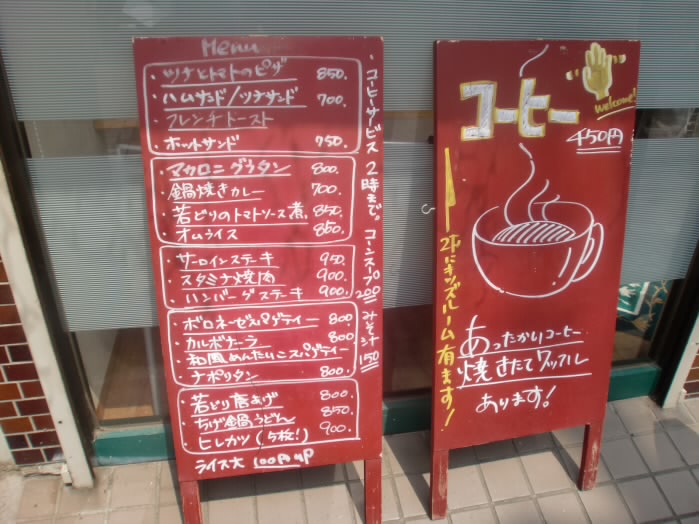 Menu
・ツナとトマトのピザ 850.
・ハムサンド/ツナサンド 700.
・フレンチトースト
・ホットサンド 750.
・マカロニグラタン 800.
・鍋焼きカレー 700.
・若どりのトマトソース煮. 850.
・オムライス 850.
・サーロインステーキ 950.
・スタミナ焼肉 900.
・ハンバーグステーキ 900.
・ボロネーゼスパゲティー 800
・カルボナーラ 800.
・和風めんたいこスパゲティー
・ナポリタン 800.
・若どり唐あげ 800.
・ちげ鍋うどん 850.
・ヒレカツ(5枚!) 900.
ライス大 100円UP
・コーヒーサービス 2時まで。コーンスープ 200 みそ汁 150
コーヒー
welcome!
450円
2Fにキッズルーム有ます!
あったかいコーヒー
焼きたてワッフル
あります!